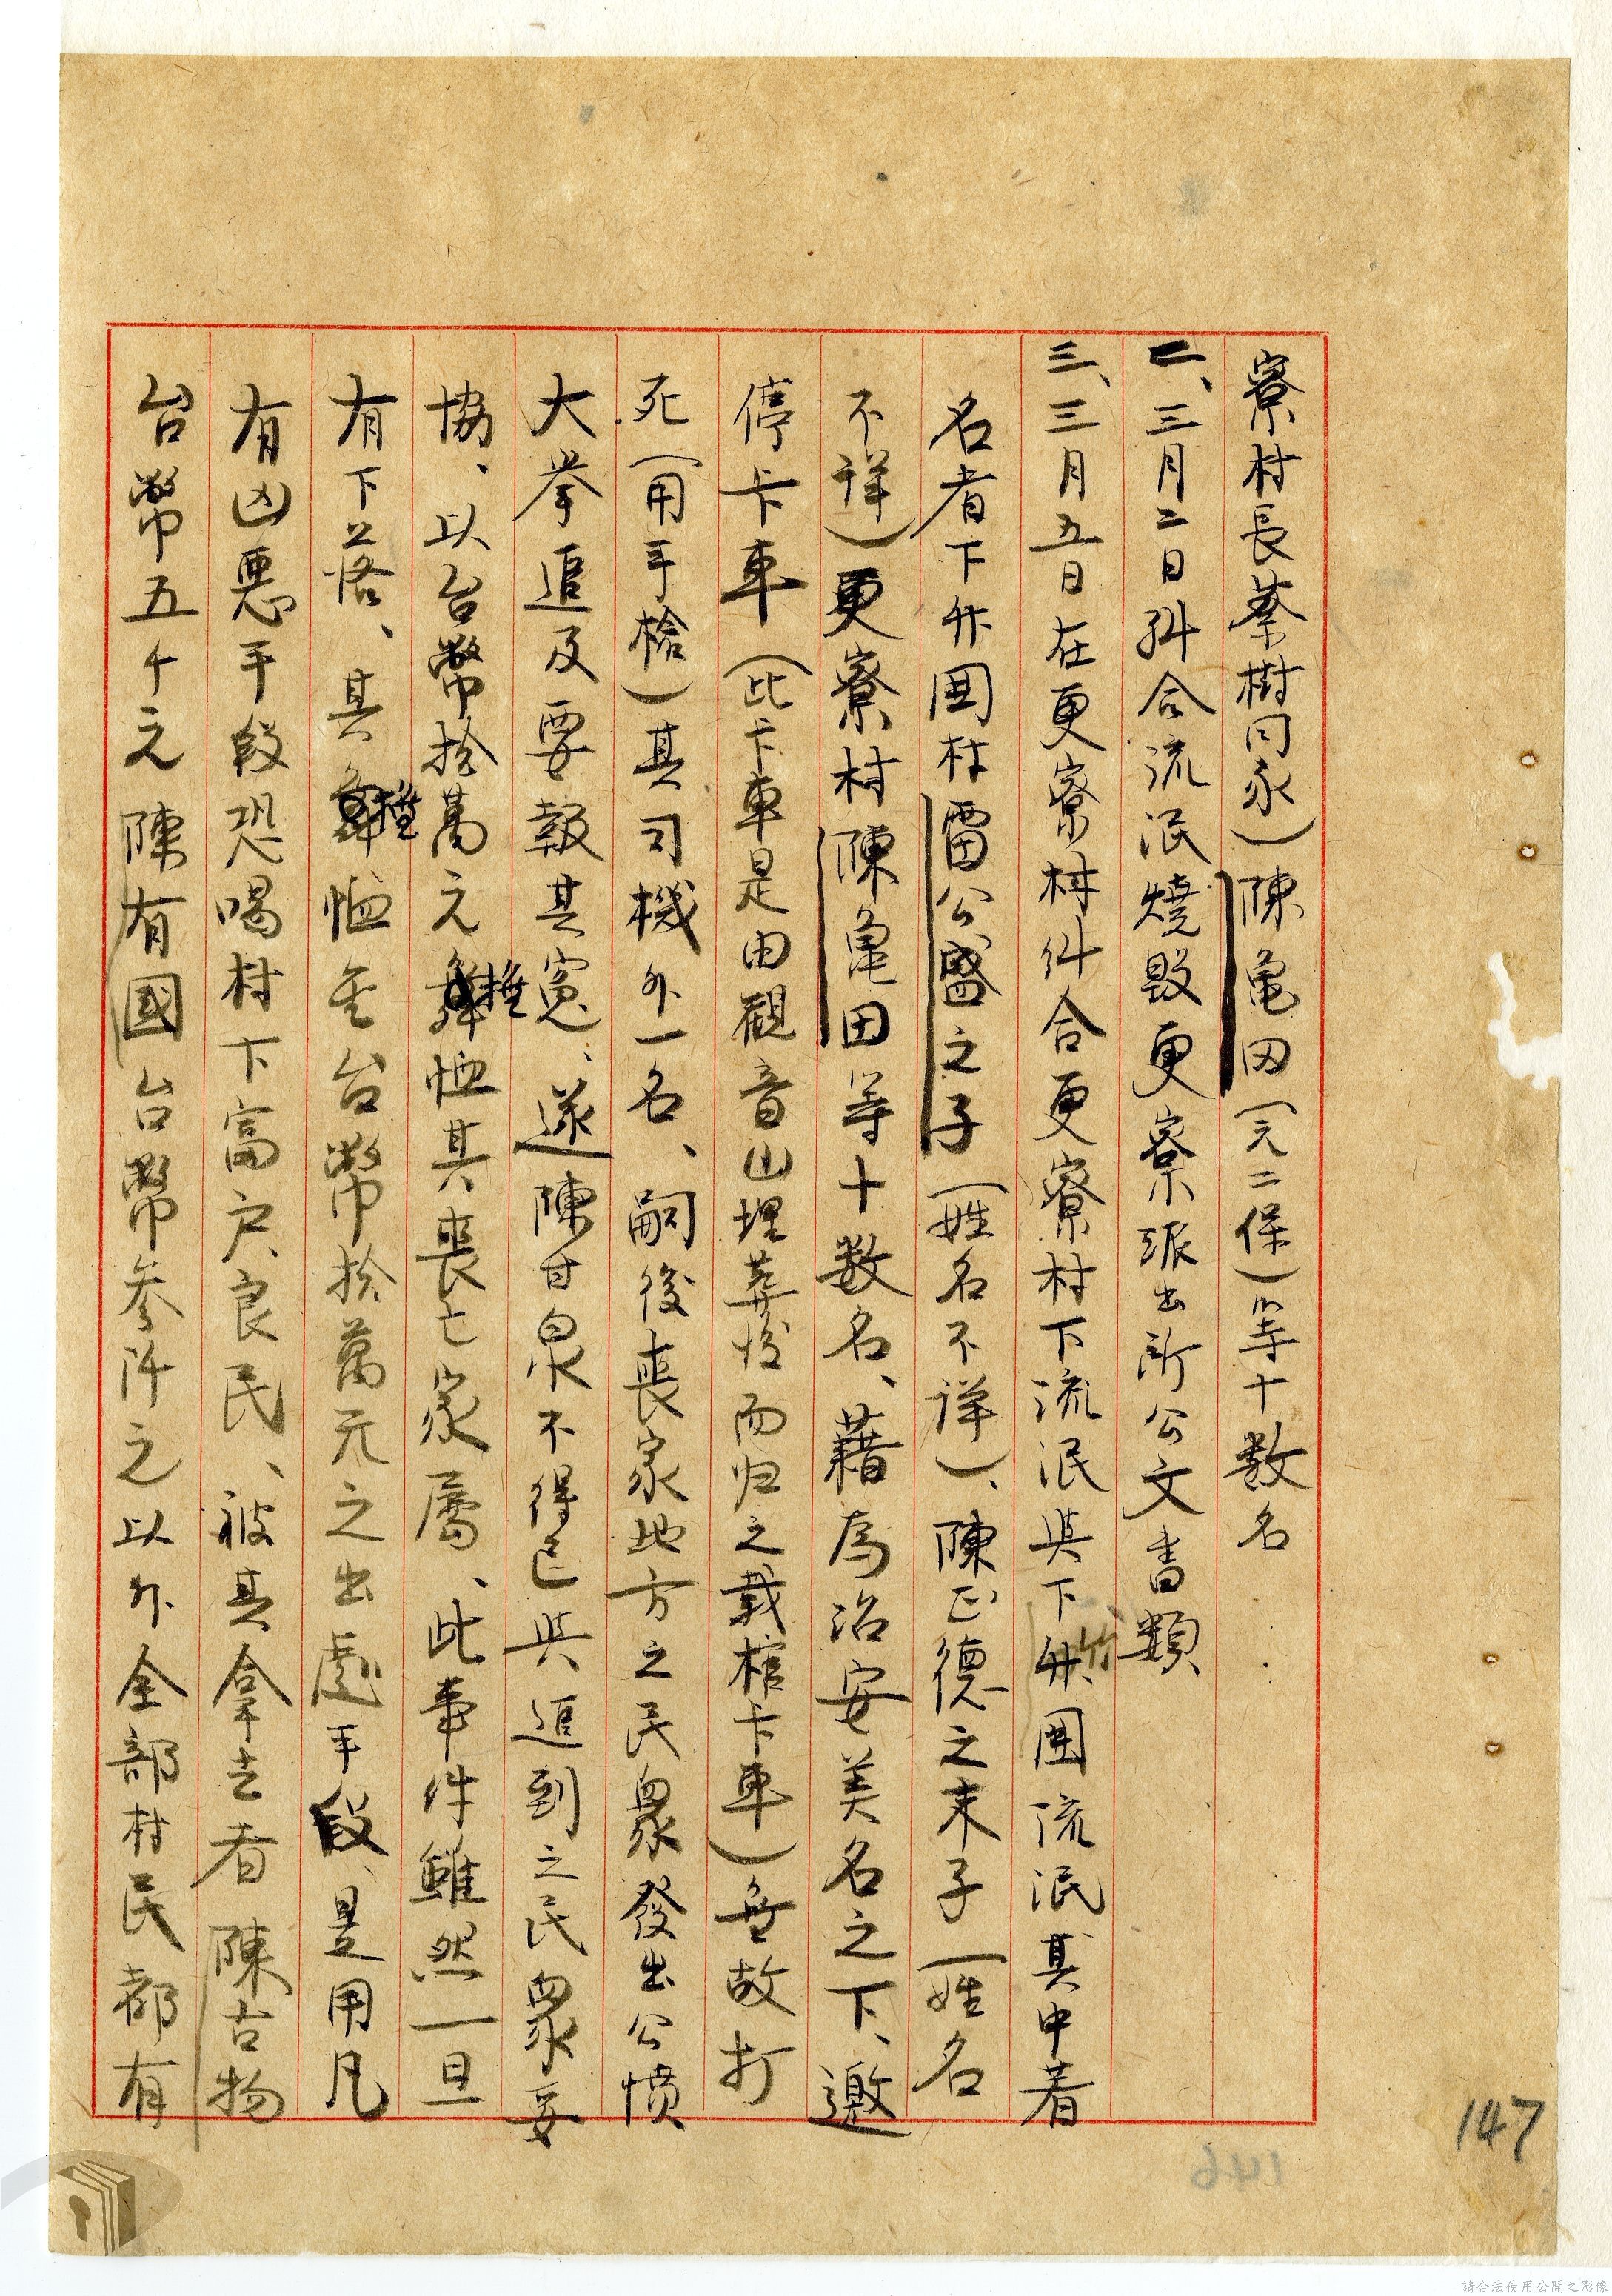 寮村長蔡樹同永)陳亀田(元二保)等十数名
二、三月二日糾合流氓燒毀更寮派出所公文書類
三、三月五日在更寮村糾合更寮村下流氓與下竹囲流氓其中著
名者下竹囲村雷公盛之子(姓名不詳)、陳正德之末子(姓名
不詳)更寮村陳亀田等十数名、藉為治安美名之下、邀
停卡車(此卡車是由觀音山埋葬後而归之載棺卡車)無故打
死(用手槍)其司機外一名、嗣後喪家地方之民衆發出公憤
大挙追及要報其冤、遂陳甘泉不得已與追到之民衆妥
協、以台幣拾萬元撫恤其喪亡家屬、此事件雖然一旦
有下落、其撫恤金台幣拾萬元之出處手段、是用凡
有凶惡手段恐喝村下富户良民、被其拿去者 陳古物
台幣五千元 陳有國台幣參阡元以外全部村民都有
147
146
請合法使用公開之影像